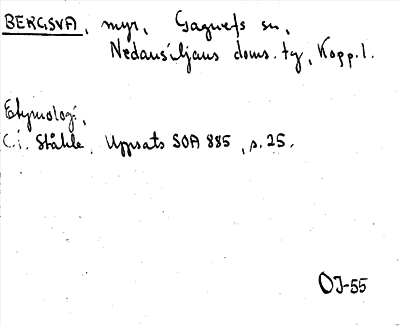 BERGSVA, myr, Gagnefs sn,
Nedansiljans doms. tg, Kopp. l.
Etymologi,
C.i. Ståhle, Uppsats SOA 885, s. 25.
OJ-55